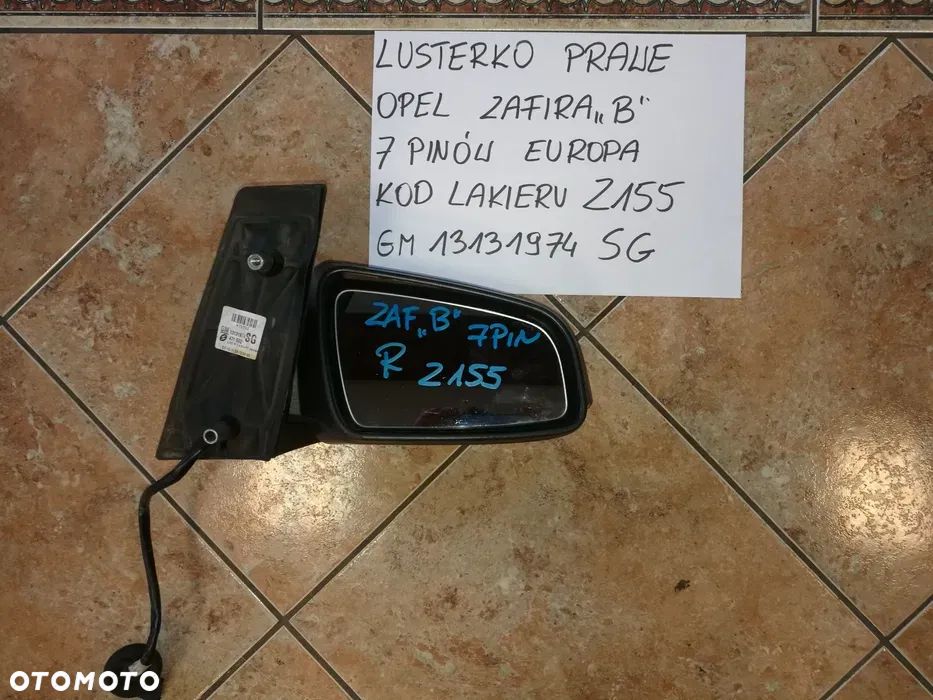 LUSTERKO PRAWE
OPEL ZAFIRA „B"
7 PINÓW EUROPA
KOD LAKIERU Z155
GM 13131974 SG
ZAF. „B" 7PIN
R Z155
SG
OTOMOTO